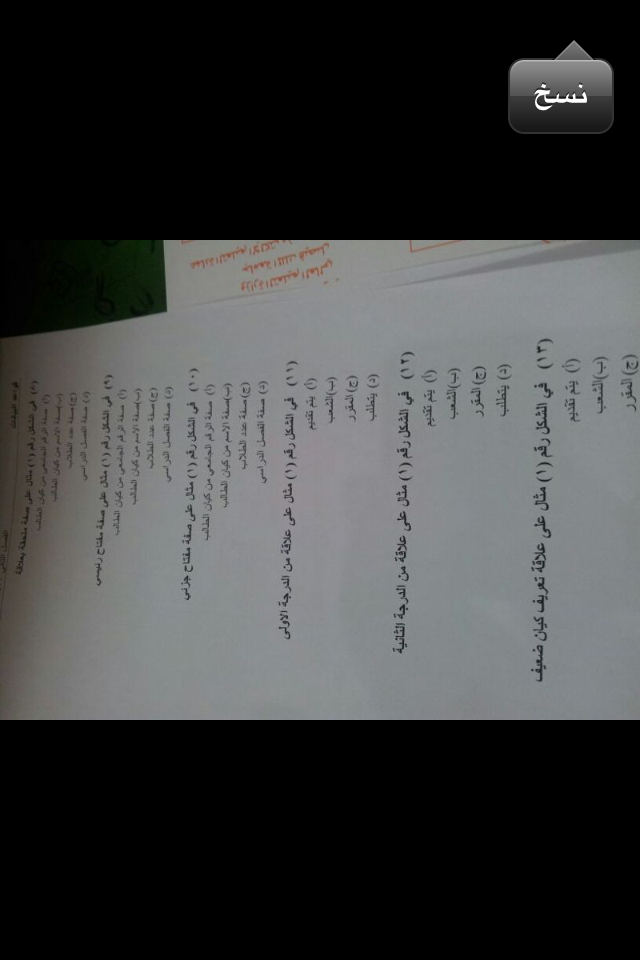 نسخ
وزارة التعليم العالي
جامعة الملك فيصل
قواعد البيانات
(٨) في الشكل رقم (١) مثال على صفة ملحقة بعلاقة
(أ) صفة الرقم الجامعي من كيان الطالب
(ب) صفة الاسم من كيان الطالب
(ج) صفة عدد الطلاب
(د) صفة الفصل الدراسي
(٩) في الشكل رقم (١) مثال على صفة مفتاح رئيسي
(أ) صفة الرقم الجامعي من كيان الطالب
(ب) صفة الاسم من كيان الطالب
(ج) صفة عدد الطلاب
(د) صفة الفصل الدراسي
(١٠) في الشكل رقم (١) مثال على صفة مفتاح جزئي
(أ) صفة الرقم الجامعي من كيان الطالب
(ب) صفة الاسم من كيان الطالب
(ج) صفة عدد الطلاب
(د) صفة الفصل الدراسي
(١١) في الشكل رقم (١) مثال على علاقة من الدرجة الاولى
(أ) يتم تقديم
(ب) الشعب
(ج) المقرر
(د) يتطلب
(١٢) في الشكل رقم (١) مثال على علاقة من الدرجة الثانية
(أ) يتم تقديم
(ب) الشعب
(ج) المقرر
(د) يتطلب
(١٣) في الشكل رقم (١) مثال على علاقة تعريف كيان ضعيف
(أ) يتم تقديم
(ب) الشعب
(ج) المقرر